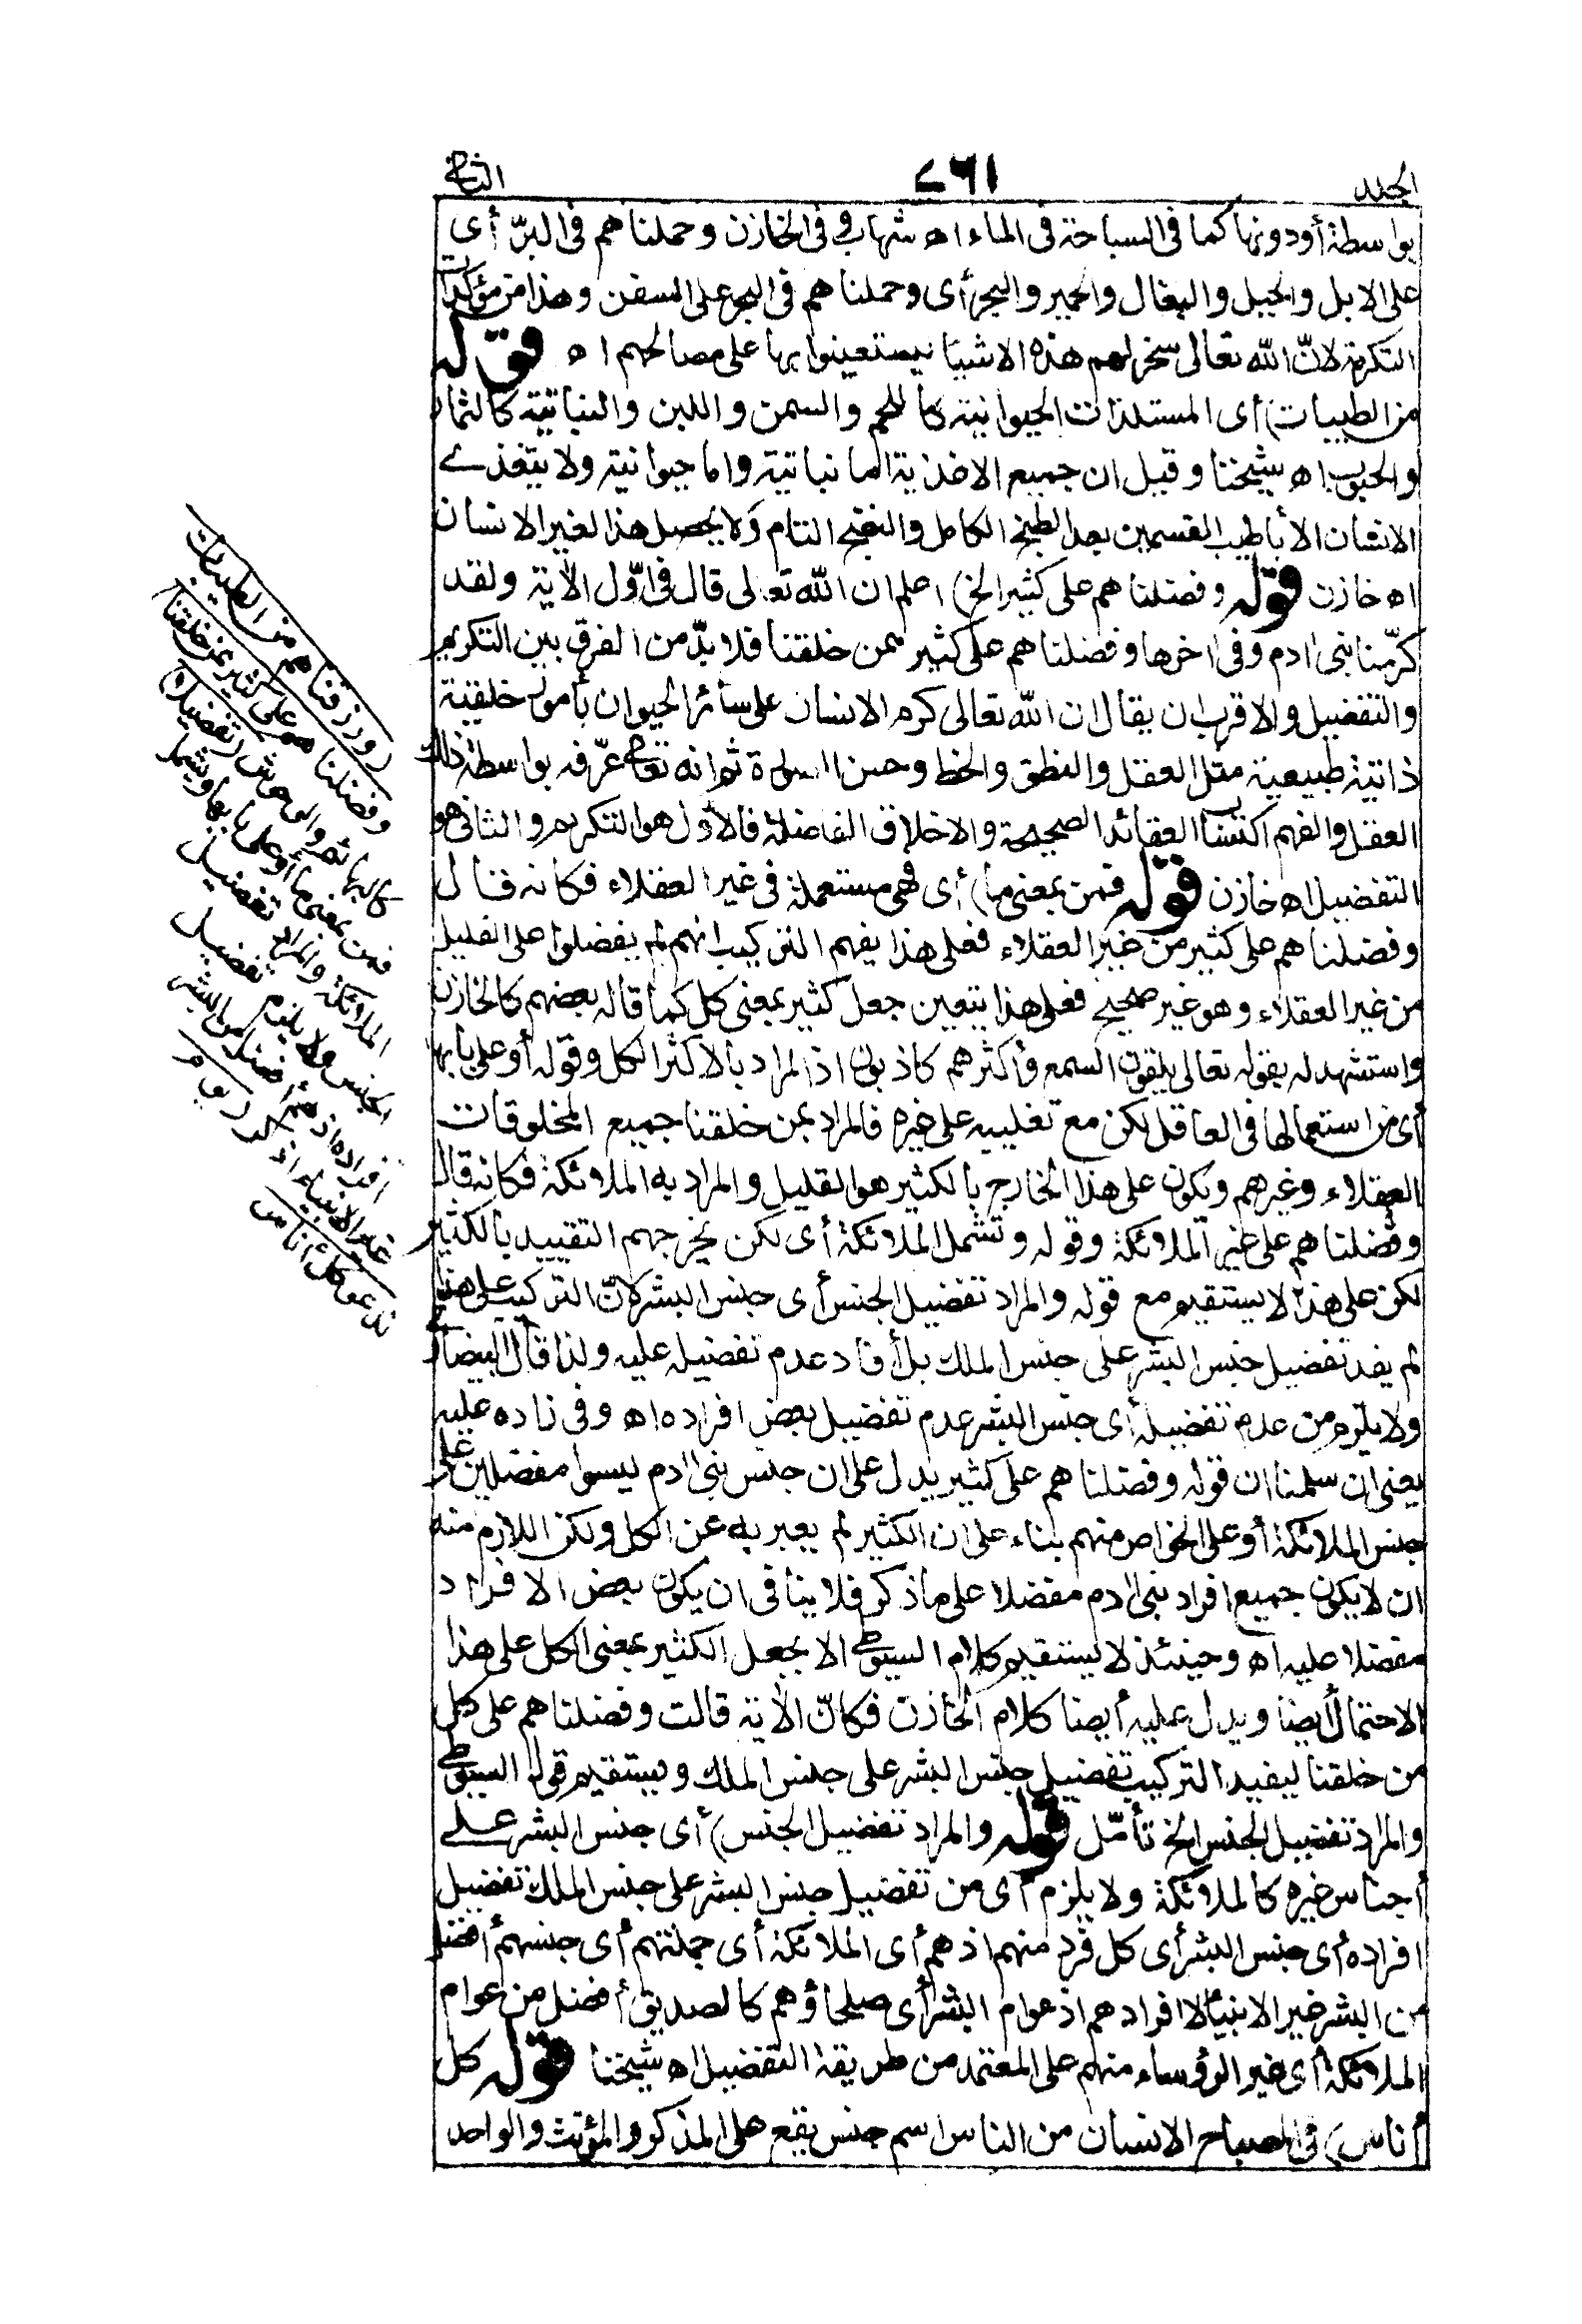 الجلد ٧٦١ الثانى
بواسطة أو دونها كما فى السباحة فى الماء اه شهاب وفى الخازن وحملناهم فى البرّ أى
على الابل والخيل والبغال والحمير والبحر أى وحملناهم فى البحر على السفن وهذا من مؤكدات
التكرمة لانّ الله تعالى سخر لهم هذه الاشيا ليستعينوا بها على مصالحهم اه قوله
من الطيبات) أى المستلذات الحيوانية كاللحم والسمن واللبن والنباتية كالثمار
والحبوب اه شيخنا وقيل ان جميع الاغذية اما نباتية واما حيوانية ولا يتغذى
الانسان الا بأطيب القسمين بعد الطبخ الكامل والنضج التام ولا يحصل هذا لغير الانسان
اه خازن قوله وفضلناهم على كثير الخ) اعلم ان الله تعالى قال فى اوّل الآية ولقد
كرّمنا بنى ادم وفى اخرها وفضلناهم على كثير ممن خلقنا فلا بدّ من الفرق بين التكريم
والتفضيل والاقرب ان يقال ان الله تعالى كرم الانسان على سائر الحيوان بأمور خلقية
ذاتية طبيعية مثل العقل والنطق والخط وحسن الصورة ثم انه تعالى عرّفه بواسطة ذلك
العقل والفهم اكتساب العقائد الصحيحة والاخلاق الفاضلة فالأوّل هو التكريم والثانى هو
التفضيل اه خازن قوله فمن بمعنى ما) أى فهى مستعملة فى غير العقلاء فكانه قال
وفضلناهم على كثير من غير العقلاء فعلى هذا يفهم التركيب انهم لم يفضلوا على القليل
من غير العقلاء وهو غير صحيح فعلى هذا يتعين جعل كثير بمعنى كل كما قاله بعضهم كالخازن
واستشهد له بقوله تعالى يلقون السمع وأكثرهم كاذبون اذ المراد بالاكثر الكل وقوله أو على بابها
أى من استعمالها فى العاقل لكن مع تغليبه على غيره فالمراد بمن خلقنا جميع المخلوقات
العقلاء وغيرهم ويكون على هذا الخارج بالكثير هو القليل والمراد به الملائكة فكانه قال
وفضلناهم على غير الملائكة وقوله وتشمل الملائكة أى لكن يخرجهم التقييد بالكثير
لكن على هذا لا يستقيم مع قوله والمراد تفضيل الجنس أى جنس البشر لانّ التركيب على هذا
لم يفد تفضيل جنس البشر على جنس الملك بل أفاد عدم تفضيله عليه ولذا قال البيضاوى
ولا يلزم من عدم تفضيله أى جنس البشر عدم تفضيل بعض افراده اه وفى زاده عليه
يعنى ان سلمنا ان قوله وفضلناهم على كثير يدل على ان جنس بنى ادم ليسوا مفضلين على
جنس الملائكة أو على الخواص منهم بناء على ان الكثير لم يعبر به عن الكل ولكن اللازم منه
ان لا يكون جميع افراد بنى ادم مفضلا على ما ذكر فلا ينافى ان يكون بعض الافراد
مفضلا عليه اه وحينئذ لا يستقيم كلام السيوطى الا بجعل الكثير بمعنى الكل على هذا
الاحتمال أيضا ويدل عليه أيضا كلام الخازن فكانّ الآية قالت وفضلناهم على كل
من خلقنا ليفيد التركيب تفضيل جنس البشر على جنس الملك ويستقيم قول السيوطى
والمراد تفضيل الجنس الخ تأمّل قوله والمراد تفضيل الجنس) أى جنس البشر على
أجناس غيره كالملائكة ولا يلزم أى من تفضيل جنس البشر على جنس الملك تفضيل
افراده أى جنس البشر أى كل فرد منهم اذ هم أى الملائكة أى جملتهم أى جنسهم أفضل
من البشر غير الانبياء لا افرادهم اذ عوام البشر أى صلحاؤهم كالصديق أفضل من عوام
الملائكة أى غير الرؤساء منهم على المعتمد من طريقة التفضيل اه شيخنا قوله كل
أناس) فى المصباح الانسان من الناس اسم جنس يقع على المذكر والمؤنث والواحد
(ورزقناهم من الطيبات
وفضلناهم على كثير ممن خلقنا
كالبهائم والوحوش (تفضيلا)
فمن بمعنى ما أو على بابها ويشمل
الملائكة والمراد تفضيل
الجنس ولا يلزم تفضيل
افراده اذ هم أفضل من البشر
غير الانبياء اذكر (يوم
ندعو كل أناس